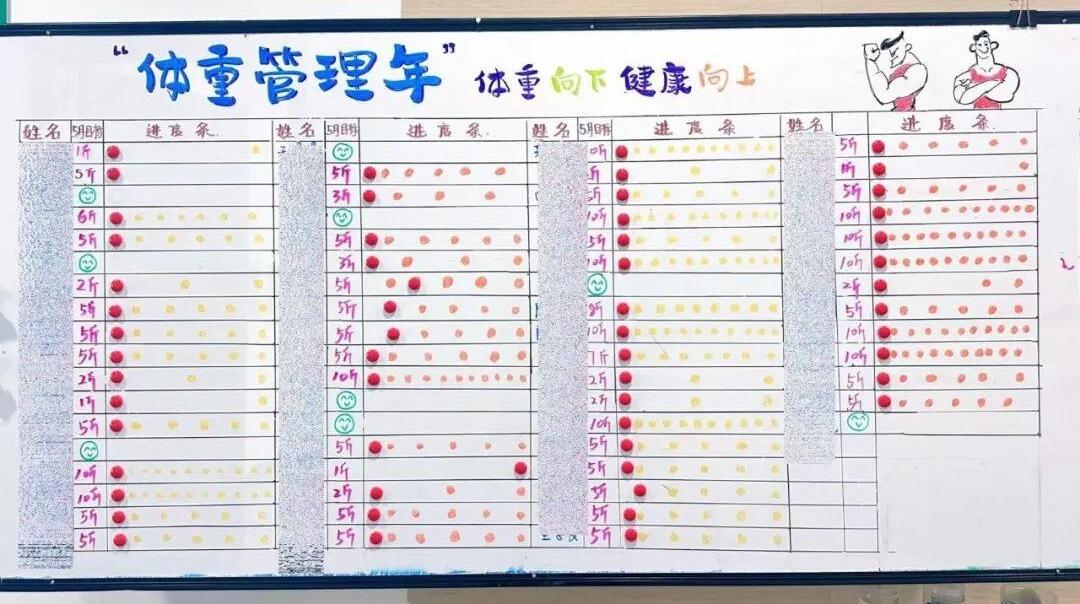 “体重管理年” 体重向下 健康向上
姓名 5月目标 进度条 姓名 5月目标 进度条 姓名 5月目标 进度条 姓名 进度条
1斤 5斤
5斤 5斤
3斤 5斤
6斤 10斤 10斤
5斤 5斤 5斤 10斤
3斤 10斤 10斤
2斤 5斤 2斤
5斤 5斤 8斤 5斤
5斤 5斤 10斤 10斤
5斤 5斤 7斤 10斤
2斤 10斤 2斤 5斤
1斤 2斤 5斤
5斤 10斤
5斤 5斤
10斤 1斤 5斤
10斤 2斤 5斤
5斤 5斤
5斤 5斤 5斤